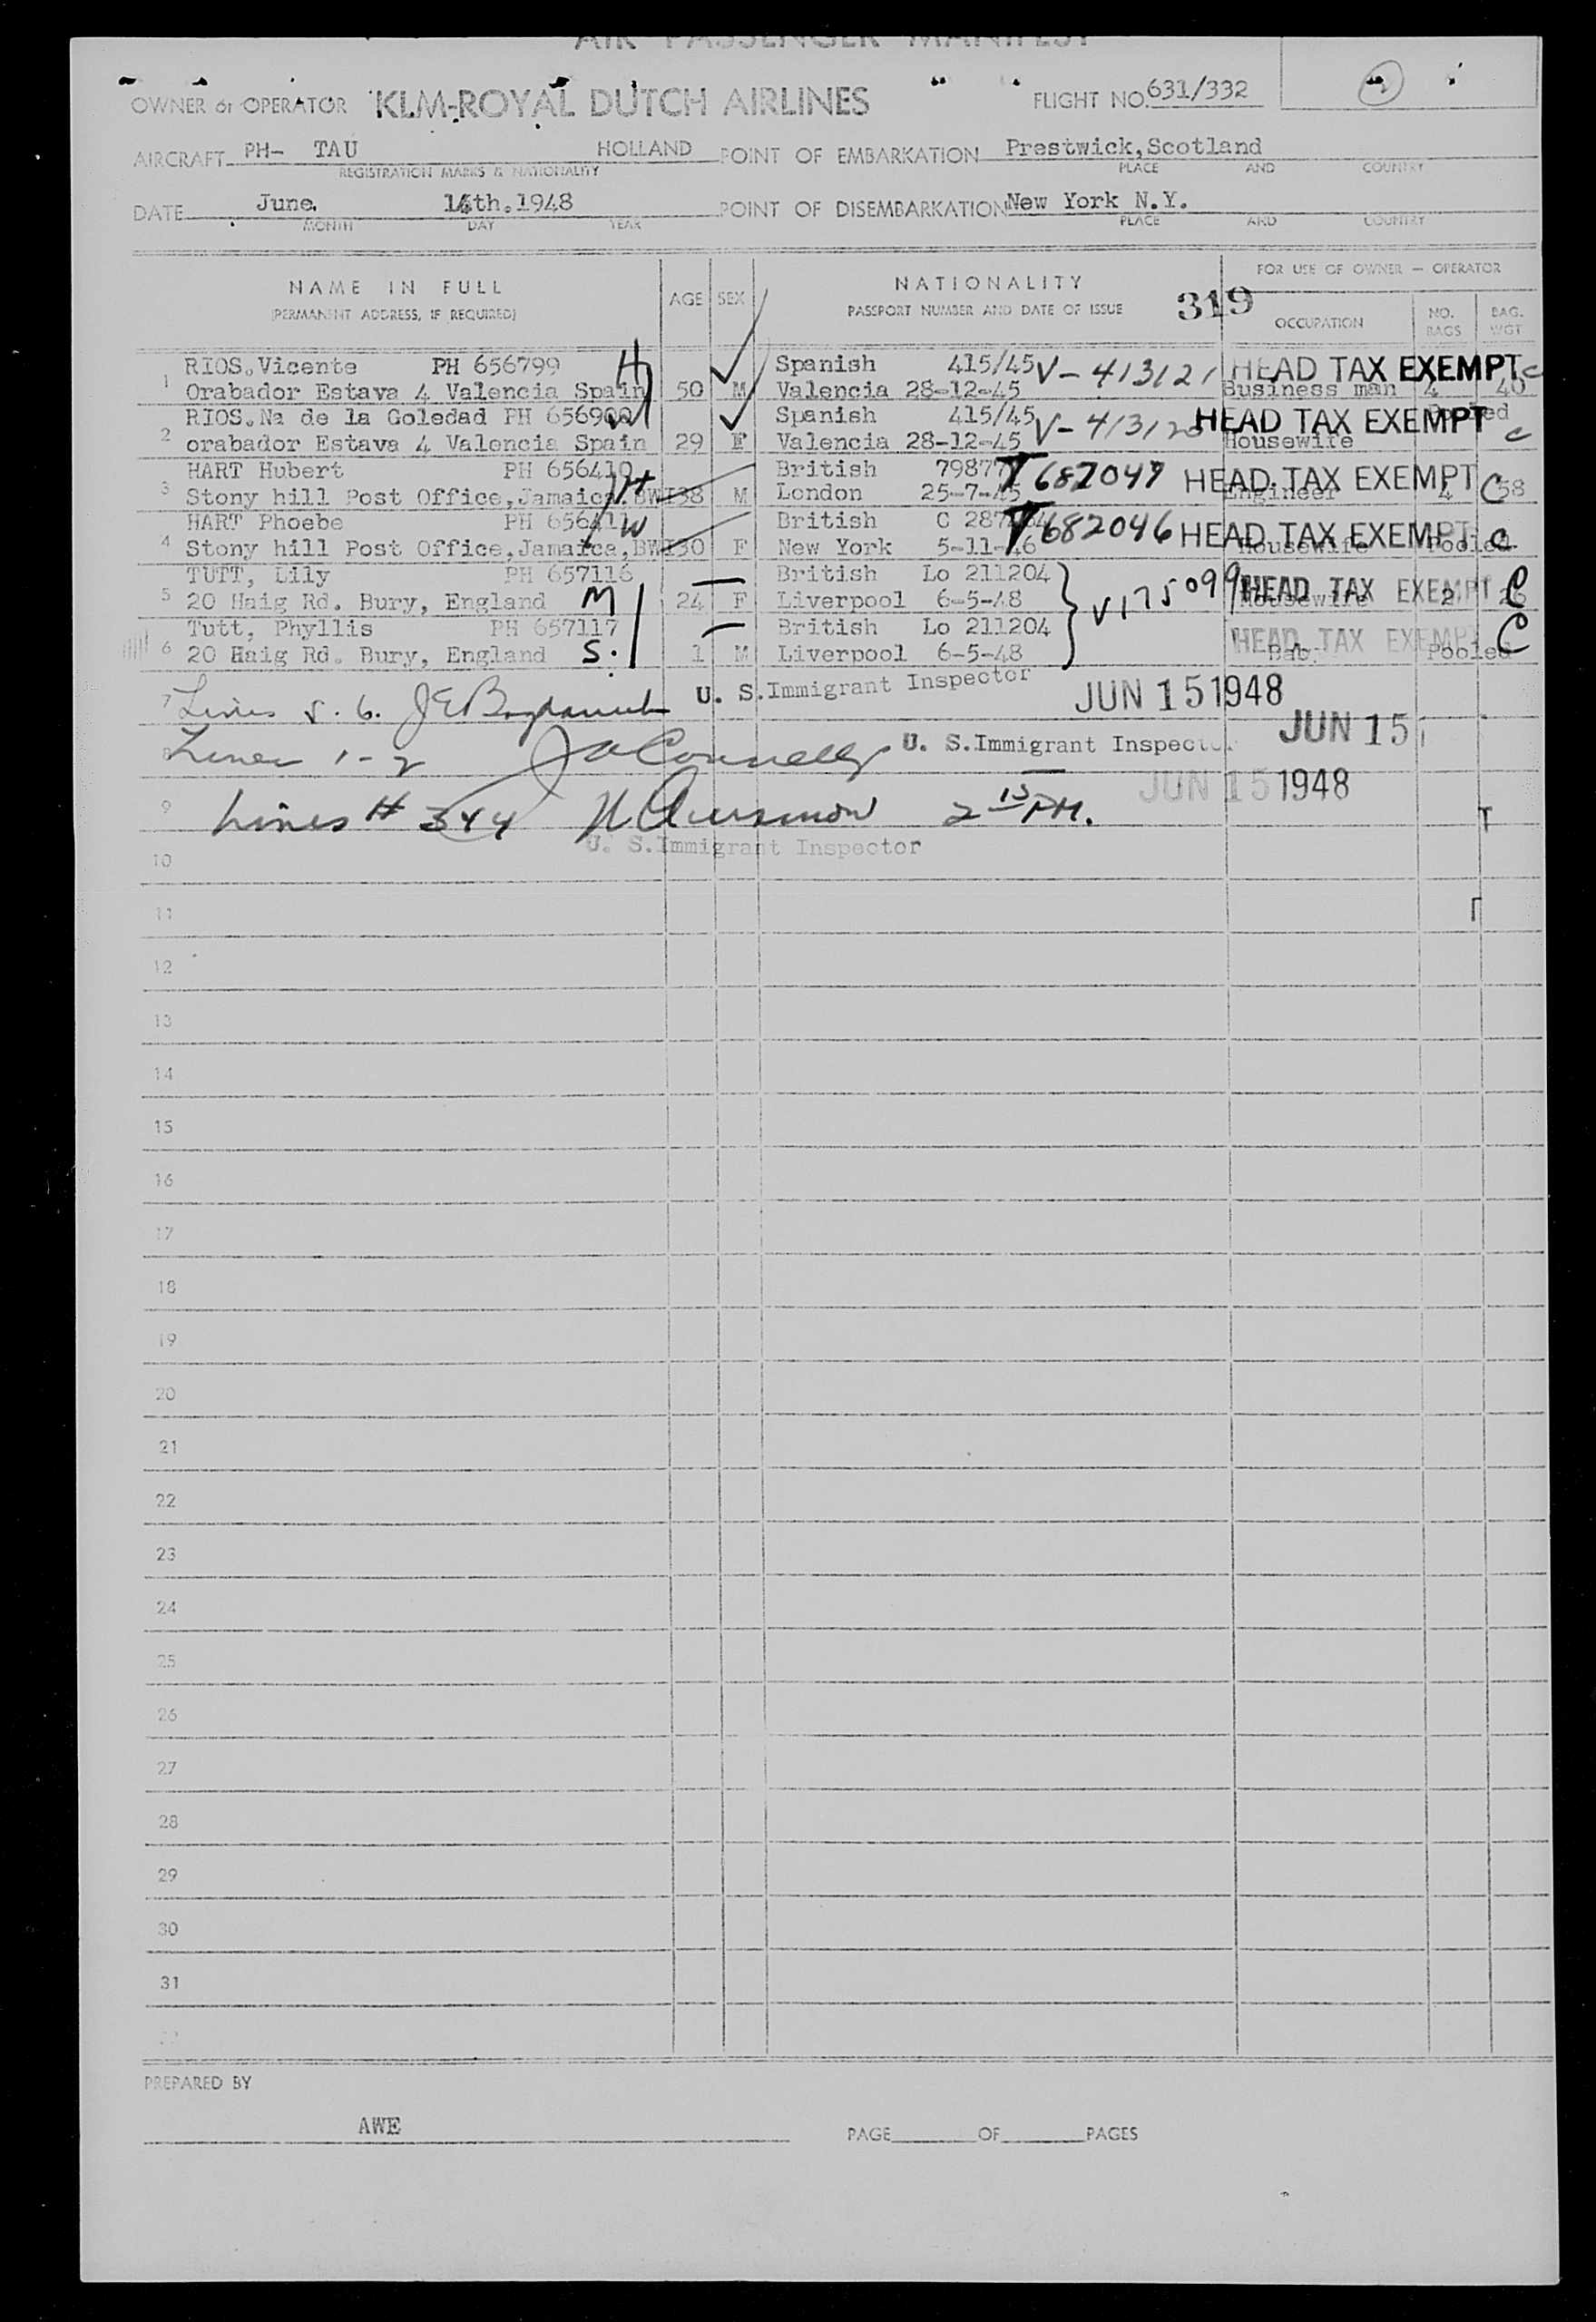 AIR PASSENGER MANIFEST
OWNER or OPERATOR KLM-ROYAL DUTCH AIRLINES FLIGHT NO. 631/332
AIRCRAFT PH- TAU HOLLAND POINT OF EMBARKATION Prestwick,Scotland
REGISTRATION MARKS & NATIONALITY PLACE AND COUNTRY
DATE June. 14th.1948 POINT OF DISEMBARKATION New York N.Y.
MONTH DAY YEAR PLACE AND COUNTRY
NAME IN FULL
(PERMANENT ADDRESS, IF REQUIRED)
AGE SEX
NATIONALITY
PASSPORT NUMBER AND DATE OF ISSUE
319
FOR USE OF OWNER — OPERATOR
OCCUPATION NO. BAGS BAG. WGT
1 RIOS.Vicente PH 656799 H Spanish 415/45 V-413121 HEAD TAX EXEMPT c
Orabador Estava 4 Valencia Spain 50 M Valencia 28-12-45 Business man 4 40
2 RIOS.Na de la Goledad PH 656900 W Spanish 415/45 V-413120 HEAD TAX EXEMPT Pooled
orabador Estava 4 Valencia Spain 29 F Valencia 28-12-45 Housewife c
3 HART Hubert PH 656410 H British T 682047 HEAD TAX EXEMPT C
Stony hill Post Office,Jamaica.BWI 38 M London 25-7-45 Engineer 4 58
4 HART Phoebe PH 656411 W British T 682046 HEAD TAX EXEMPT c
Stony hill Post Office,Jamaica,BWI 30 F New York 5-11-46 Housewife Pooled
5 TUTT, Lily PH 657116 British Lo 211204 V175099 HEAD TAX EXEMPT C
20 Haig Rd. Bury, England M 24 F Liverpool 6-5-48 Housewife 2
6 Tutt, Phyllis PH 657117 British Lo 211204 HEAD TAX EXEMPT C
20 Haig Rd. Bury, England S. 1 M Liverpool 6-5-48 Pooled
7 Lines 5. 6. U. S.Immigrant Inspector JUN 15 1948
8 Lines 1-2 JA Connelly U. S.Immigrant Inspector JUN 15
9 Lines # 3 & 4 2 15 PM. JUN 15 1948
U. S.Immigrant Inspector
10
11
12
13
14
15
16
17
18
19
20
21
22
23
24
25
26
27
28
29
30
31
PREPARED BY
AWE
PAGE OF PAGES